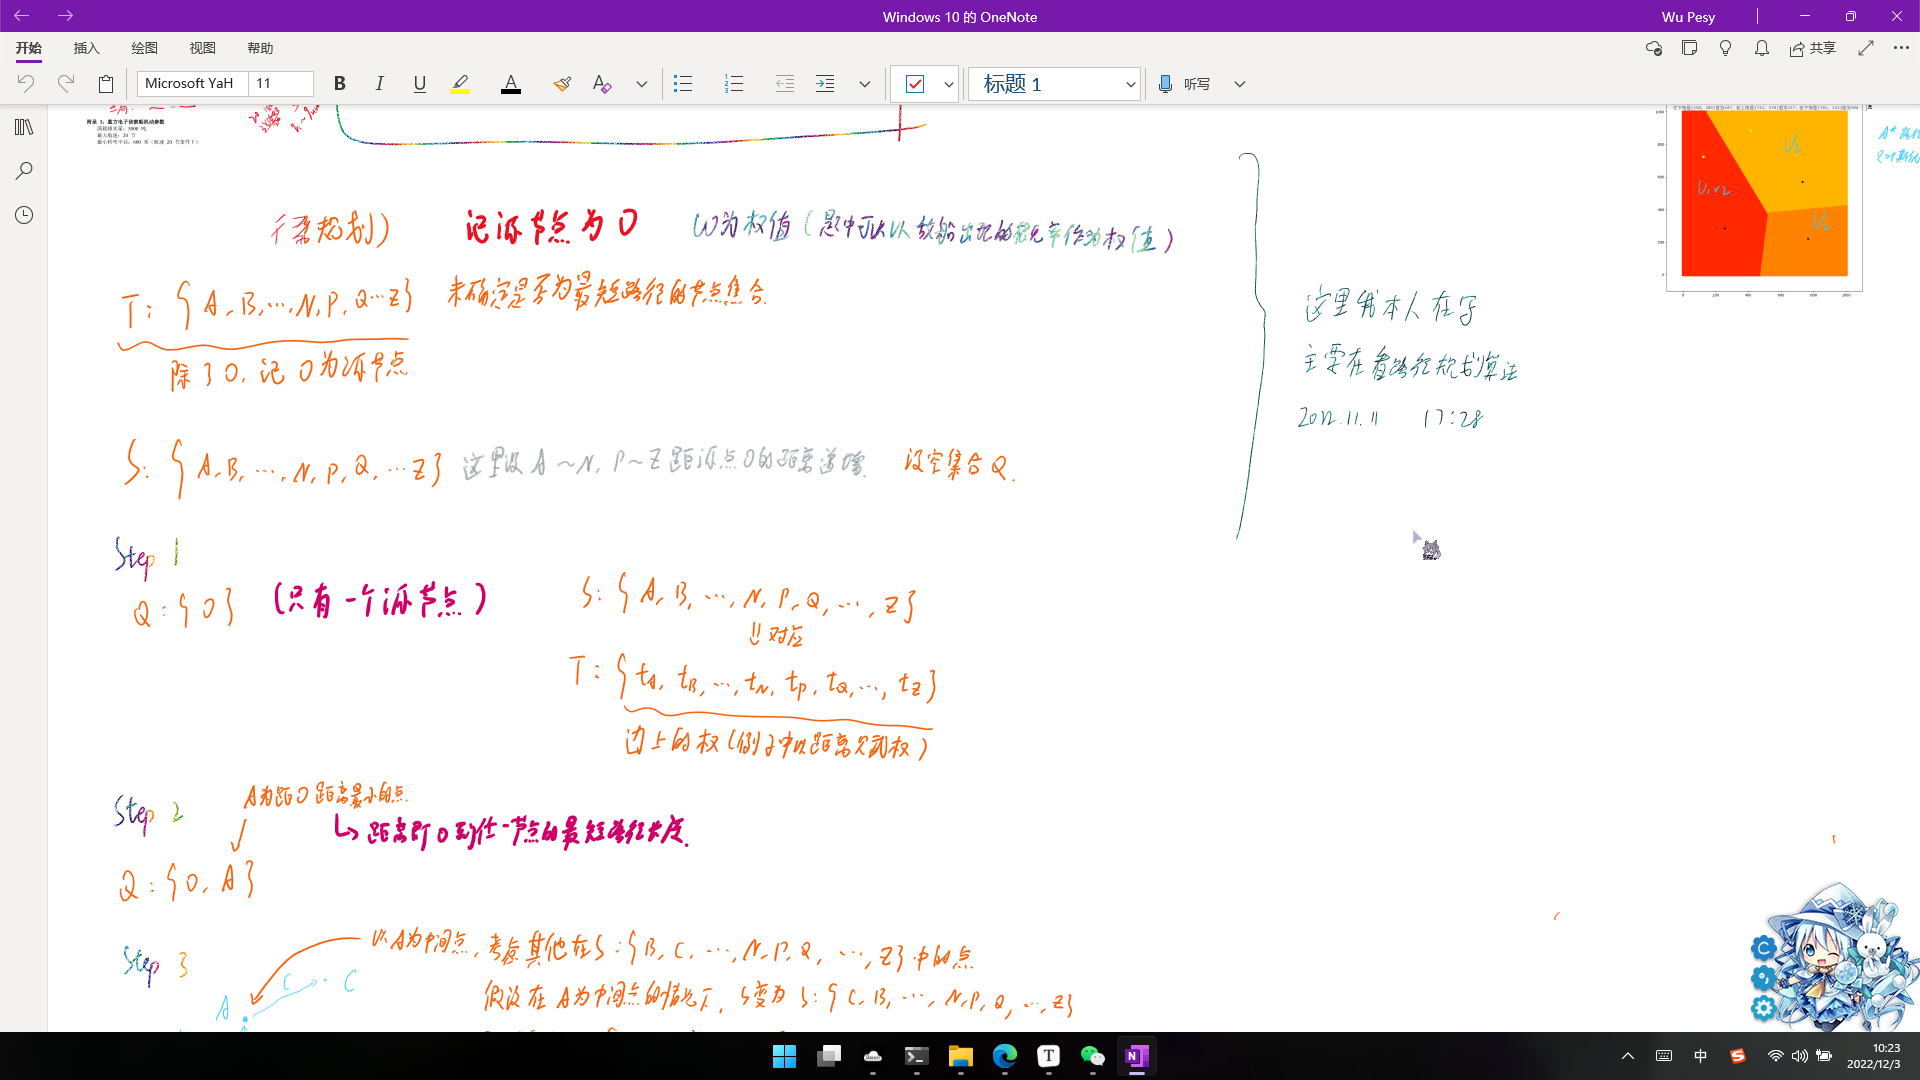 Windows 10 的 OneNote
Wu Pesy
开始 插入 绘图 视图 帮助
共享
Microsoft YaH 11
B I U A
标题 1
听写
附录 3：蓝方电子侦察船机动参数
满载排水量：5000 吨
最大航速：20 节
最小转弯半径：600 米（航速 20 节条件下）
规划）
记源节点为 O
W为权值（题中可以以敌船出现的概率作为权值）
T：{A，B，…，N，P，Q…Z} 未确定是否为最短路径的节点集合．
除了O，记O为源节点
S：{A，B，…，N，P，Q，…Z} 这里设 A～N，P～Z 距源点O的距离递增． 设空集合 Q．
这里我本人在写
主要在看路径规划算法
2022.11.11 17:28
A*
U₂
U₂
Step 1
Q：{O} （只有一个源节点）
S：{A，B，…，N，P，Q，…，Z}
对应
T：{tA，tB，…，tN，tP，tQ，…，tZ}
边上的权（例子中以距离为或权）
Step 2
A为距O距离最小的点．
距离即O到任一节点的最短路径长度．
Q：{O，A}
Step 3
以A为中间点，考虑其他在S：{B，C，…，N，P，Q，…，Z}中的点
假设在A为中间点的情况下，S变为 S：{C，B，…，N，P，Q，…，Z}
A C C
中
10:23
2022/12/3